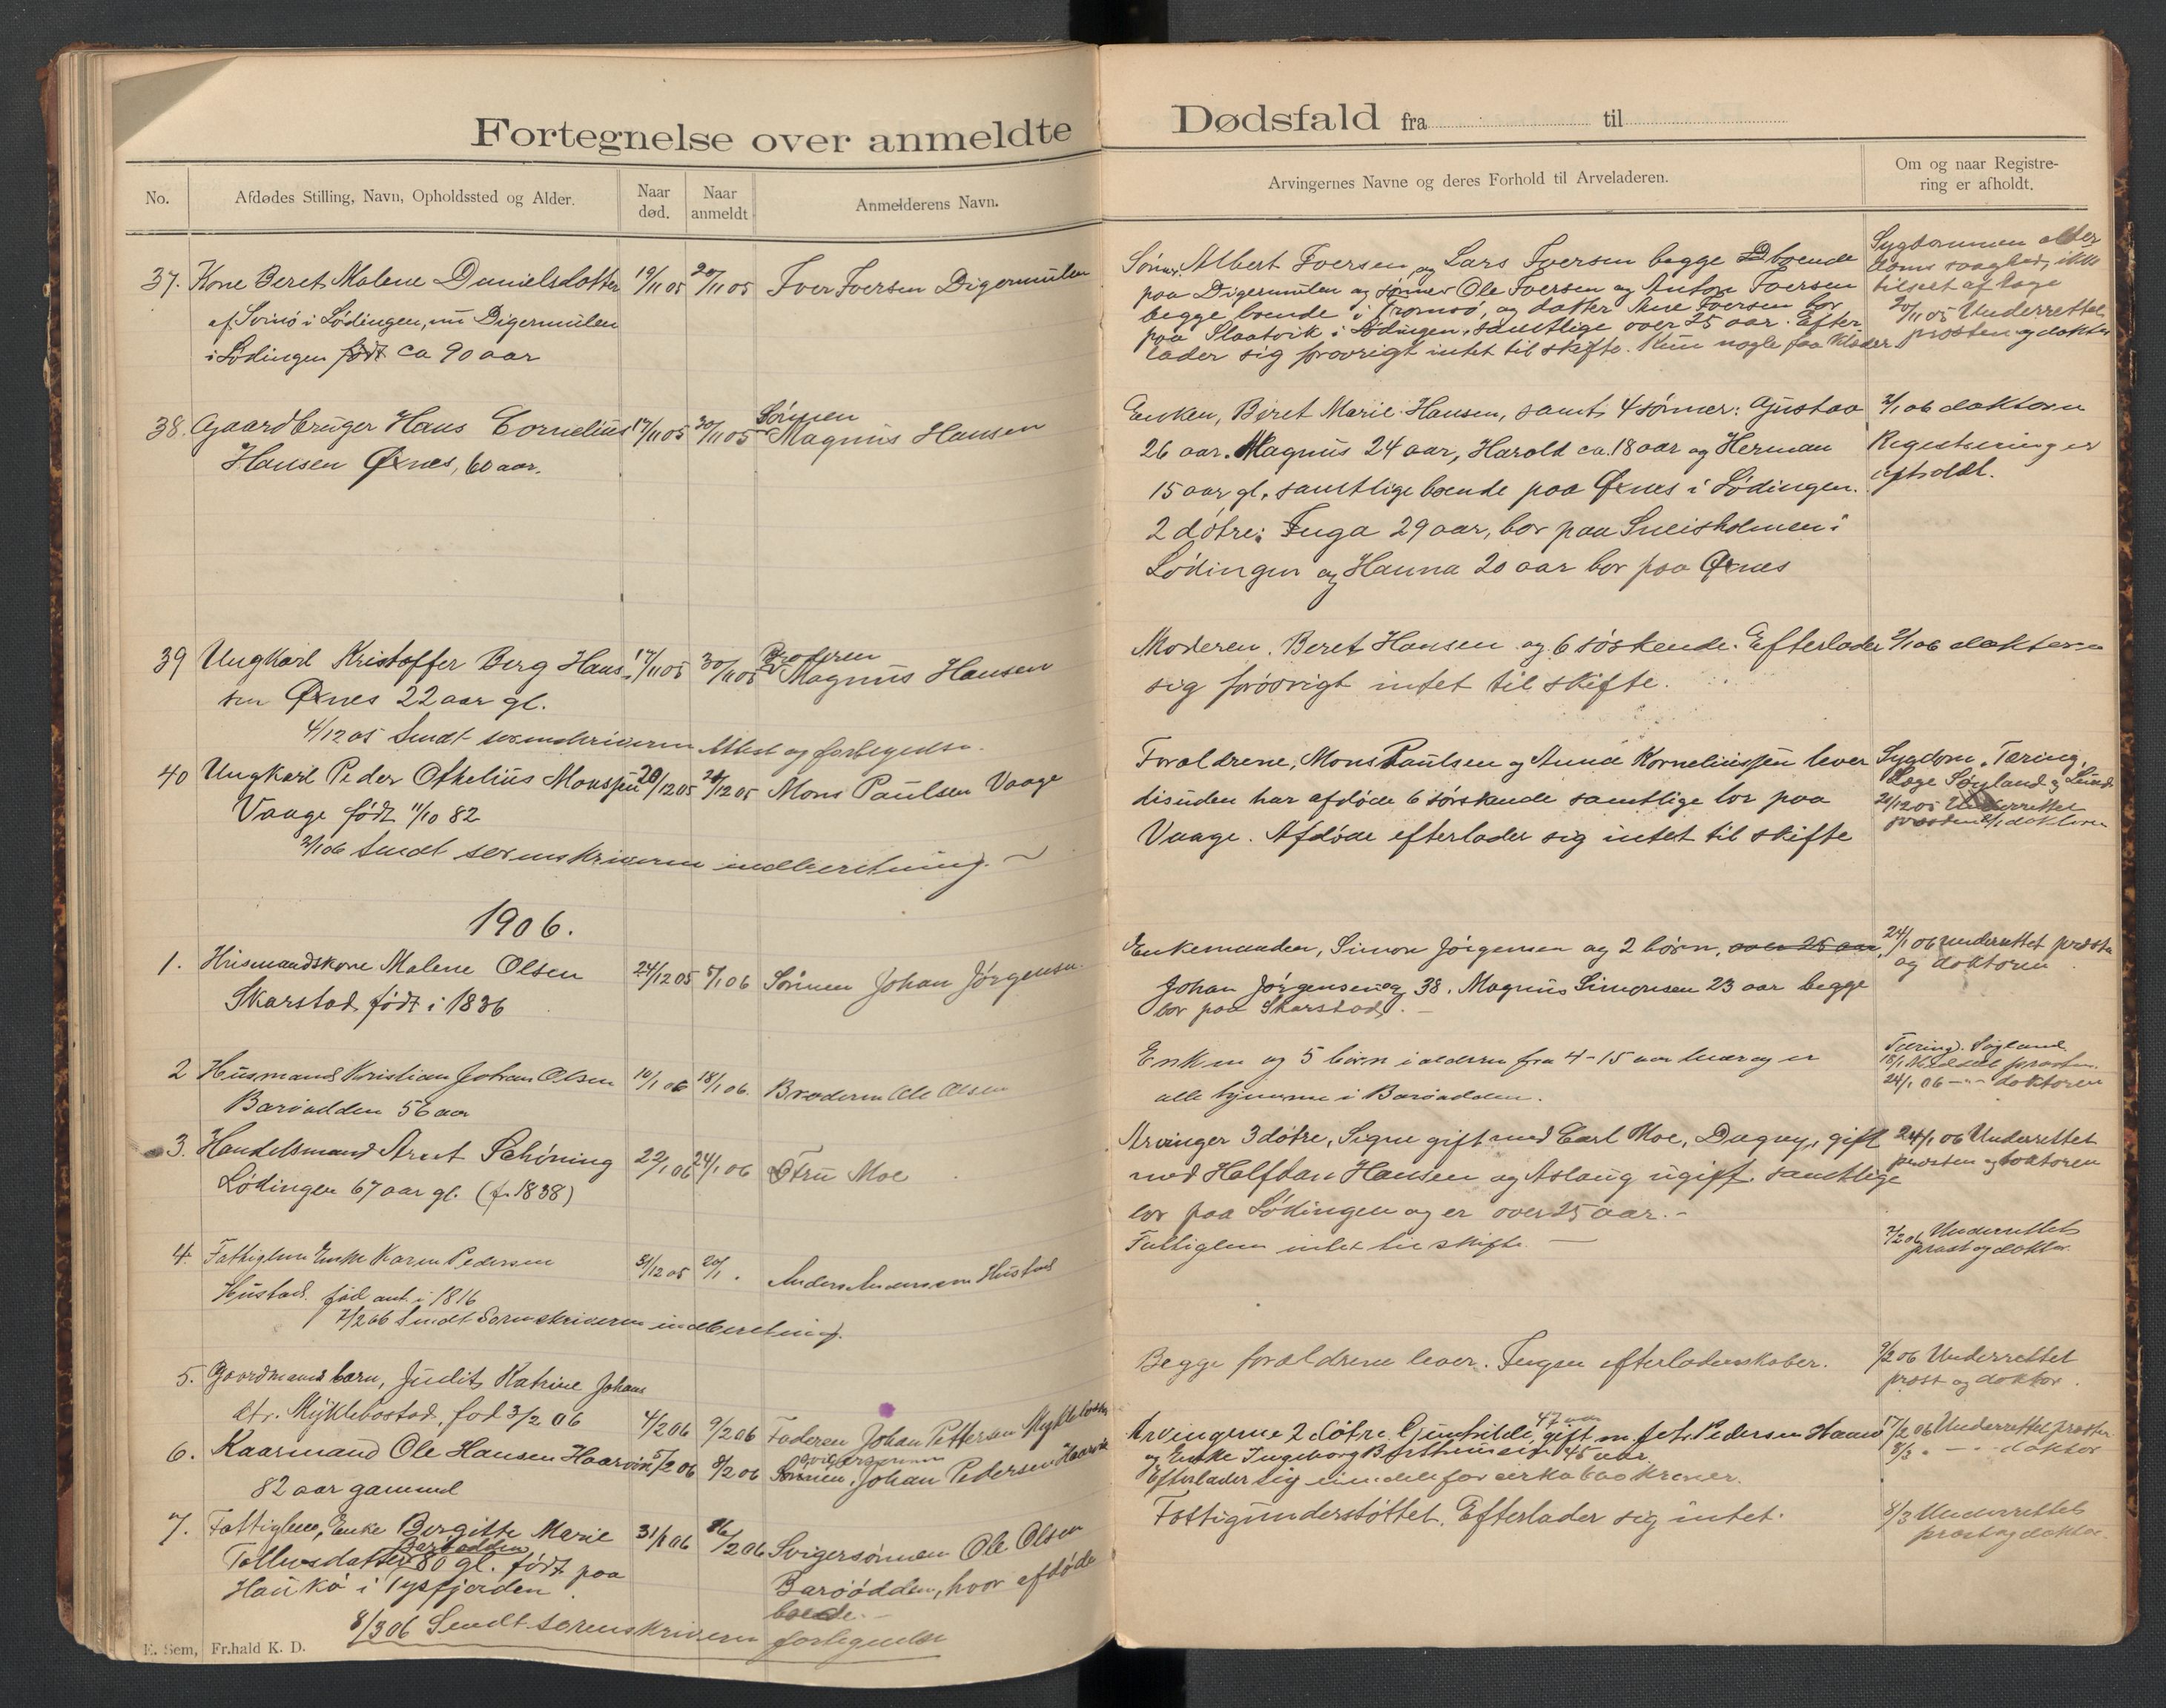 Fortegnelse over anmeldte
No.
Afdødes Stilling, Navn, Opholdssted og Alder.
Naar død.
Naar anmeldt
Anmelderens Navn.
37. Kone Beret Malene Danielsdatter 19/11 05 20/11 05 Iver Iversen Digermulen
af Svinø i Lødingen, nu Digermulen
i Lødingen født ca 90 aar
38. Gaardbruger Hans Cornelius 17/11 05 30/11 05 Sønnen Magnus Hansen
Hansen Øxnes, 60 aar.
39 Ungkarl Kristoffer Berg Han- 17/11 05 30/11 05 Broderen Magnus Hansen
sen Øxnes 22 aar gl.
4/12 05 Sendt sorenskriveren Attest og fortegnelse.
40 Ungkarl Peder Othelius Monssen 20/12 05 21/12 05 Mons Paulsen Vaage
Vaage født 11/10 82
2/1 06 Sendt sorenskriveren indberetning.
1906.
1. Husmandskone Malene Olsen 24/12 05 5/1 06 Sønnen Johan Jørgensen
Skarstad født i 1836
2 Husmand Kristian Johan Olsen 10/1 06 18/1 06. Broderen Ole Olsen
Barøodden 56 aar
3. Handelsmand Arnt Schöning 22/1 06 24/1 06 Fru Moe
Lødingen 67 aar gl. (f. 1838)
4. Fattiglem Enke Karen Pedersen 31/12 05 20/1 Anders Andersen Hustad
Hustad. fød ant. i 1816
7/2 06 Sendt Sorenskriveren indberetning.
5. Gaardmands barn, Judit Katrine Johans
dtr. Myklebostad, fød 3/2 06 4/2 06 9/2 06 Faderen Johan Pettersen Myklebostad
6. Kaarmand Ole Hansen Haarvik 5/2 06 8/2 06 Sønnen, Johan Pedersen Haarvik
82 aar gammel
7. Fattiglem, Enke Bergitte Marie 31/1 06 16/2 06 Svigersønnen Ole Olsen
Tollevsdatter Barøodden 80 gl. født paa Barøodden, hvor afdøde
Haukø i Tysfjorden. boede.
8/3 06 Sendt sorenskriveren fortegnelse
E. Sem, Fr.hald K. D.
Dødsfald fra til
Arvingernes Navne og deres Forhold til Arveladeren.
Om og naar Registre-
ring er afholdt.
Sønner Albert Iversen og Lars Iversen begge boende
paa Digermulen og sønner Ole Iversen og Anton Iversen
begge boende i Tromsø, og datter Ane Iversen bor
paa Slaatvik i Lødingen, samtlige over 25 aar. Efter
lader sig forøvrigt intet til skifte. Kun nogle faa klæder.
Sygdommen alder
doms svaghed, ikke
tilseet af læge
20/11 05 Underrettet
prosten og doktor
Enken, Beret Marie Hansen, samt 4 sønner: Gustav
26 aar. Magnus 24 aar, Harold ca. 18 aar og Herman
15 aar gl, samtlige boende paa Øxnes i Lødingen.
2 døtre: Inga 29 aar, bor paa Sneisholmen i
Lødingen og Hanna 20 aar bor paa Øxnes
2/1 06 doktoren
Registrering er
afholdt.
Moderen, Beret Hansen og 6 søskende. Efterlader
sig forøvrigt intet til skifte.
2/1 06 doktoren
Forældrene, Mons Paulsen og Anna Korneliussen lever
disuden har afdøde 6 sørskende samtlige bor paa
Vaage. Afdøde efterlader sig intet til skifte
Sygdom, Tæring,
Læge Søyland og Lund
21/12 05 Underrettet
prosten 2/1 doktoren
Enkemanden, Simon Jørgensen og 2 børn, over 25 aar,
Johan Jørgensen og 38. Magnus Simonsen 23 aar begge
bor paa Skarstad.
24/1 06 underrettet prosten
og doktoren
Enken og 5 børn i alderen fra 4-15 aar lever og er
alle hjemme i Barøodden.
Tæring. Søyland
18/1 Meddelt prosten.
24/1 06 -"- doktoren
Arvinger 3 døtre, Signe gift med Carl Moe, Dagny, gift
med Halfdan Hansen og Aslaug ugift. samtlige
bor paa Lødingen og er over 25 aar.
24/1 06 Underrettet
prosten og doktoren
Fattiglem intet til skifte.
7/2 06 Underrettet
prost og doktor.
Begge forældrene lever. Ingen efterladenskaber.
9/2 06 Underrettet
prost og doktor.
Arvingerne 2 døtre. Gunhilde, 47 aar gift m. Joh. Pedersen Haarvik
og Enke Ingeborg 45 aar.
Efterlader sig eiendele for cirka kroner.
17/2 06 Underrettet prosten
8/3 " - " doktor
Fattigunderstøttet. Efterlader sig intet.
8/3 Underrettet
prost og doktor.